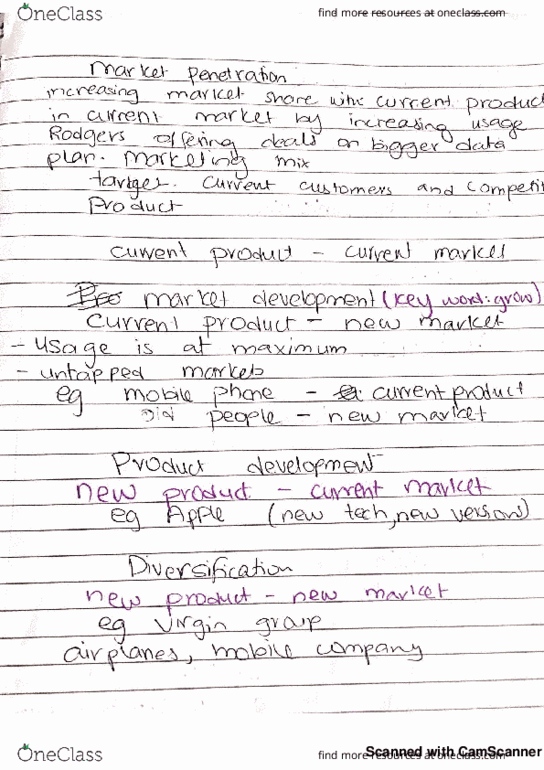 OneClass
find more resources at oneclass.com
market penetration
increasing market share with current product
in current market by increasing usage
Rodgers offering deals on bigger data
plan. Marketing mix
target. current customers and competit
Product
current product - current market
market development (key word: grow)
current product - new market
- usage is at maximum
- untapped markets
eg mobile phone - current product
old people - new market
Product development
new product - current market
eg Apple (new tech, new version)
Diversification
new product - new market
eg Virgin group
airplanes, mobile company
OneClass
find more resources at oneclass.com
Scanned with CamScanner